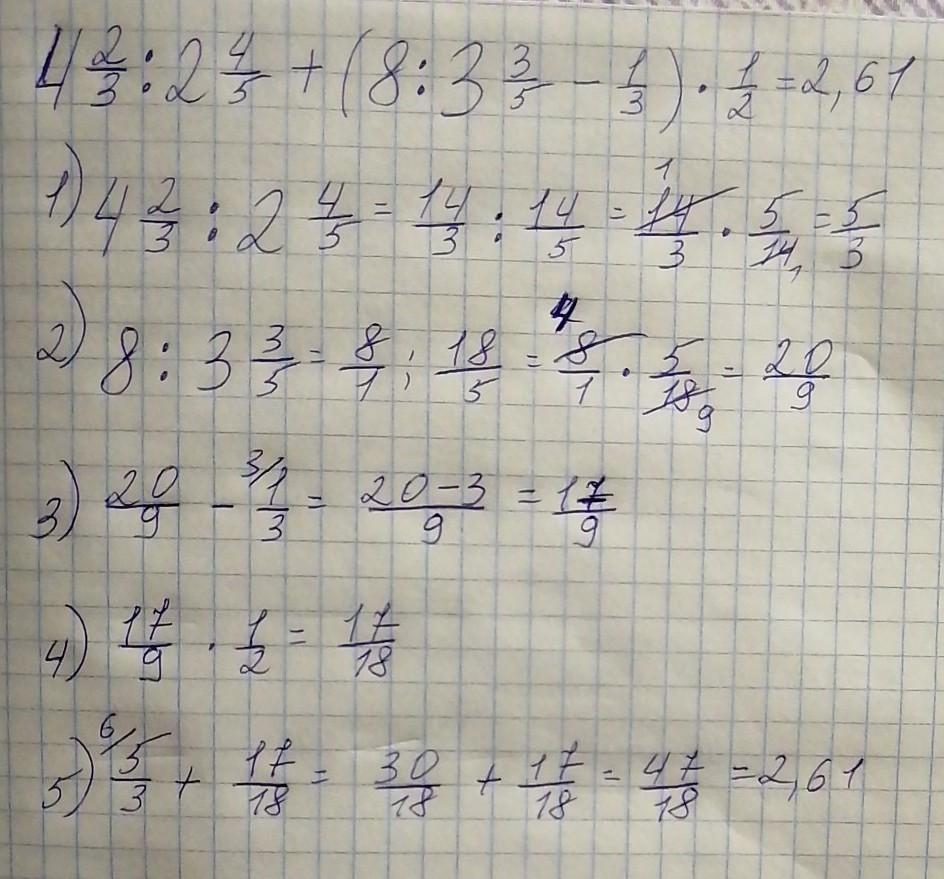 4 2/3 : 2 4/5 + (8 : 3 3/5 - 1/3) · 1/2 = 2,61
1) 4 2/3 : 2 4/5 = 14/3 : 14/5 = 14/3 · 5/14 = 5/3
2) 8 : 3 3/5 = 8/1 : 18/5 = 8/1 · 5/18 = 20/9
3) 20/9 - 1/3 = 20-3/9 = 17/9
4) 17/9 · 1/2 = 17/18
5) 5/3 + 17/18 = 30/18 + 17/18 = 47/18 = 2,61